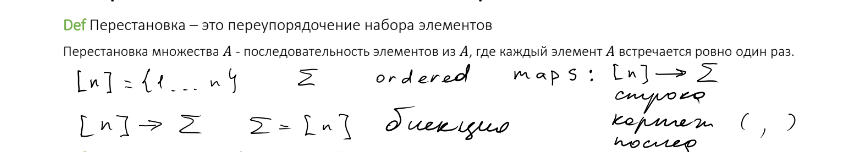 Def Перестановка – это переупорядочение набора элементов
Перестановка множества A - последовательность элементов из A, где каждый элемент A встречается ровно один раз.
[n] = {1 ... n} Σ ordered maps : [n] → Σ
строка
[n] → Σ Σ = [n] биекция кортеж ( , )
послед